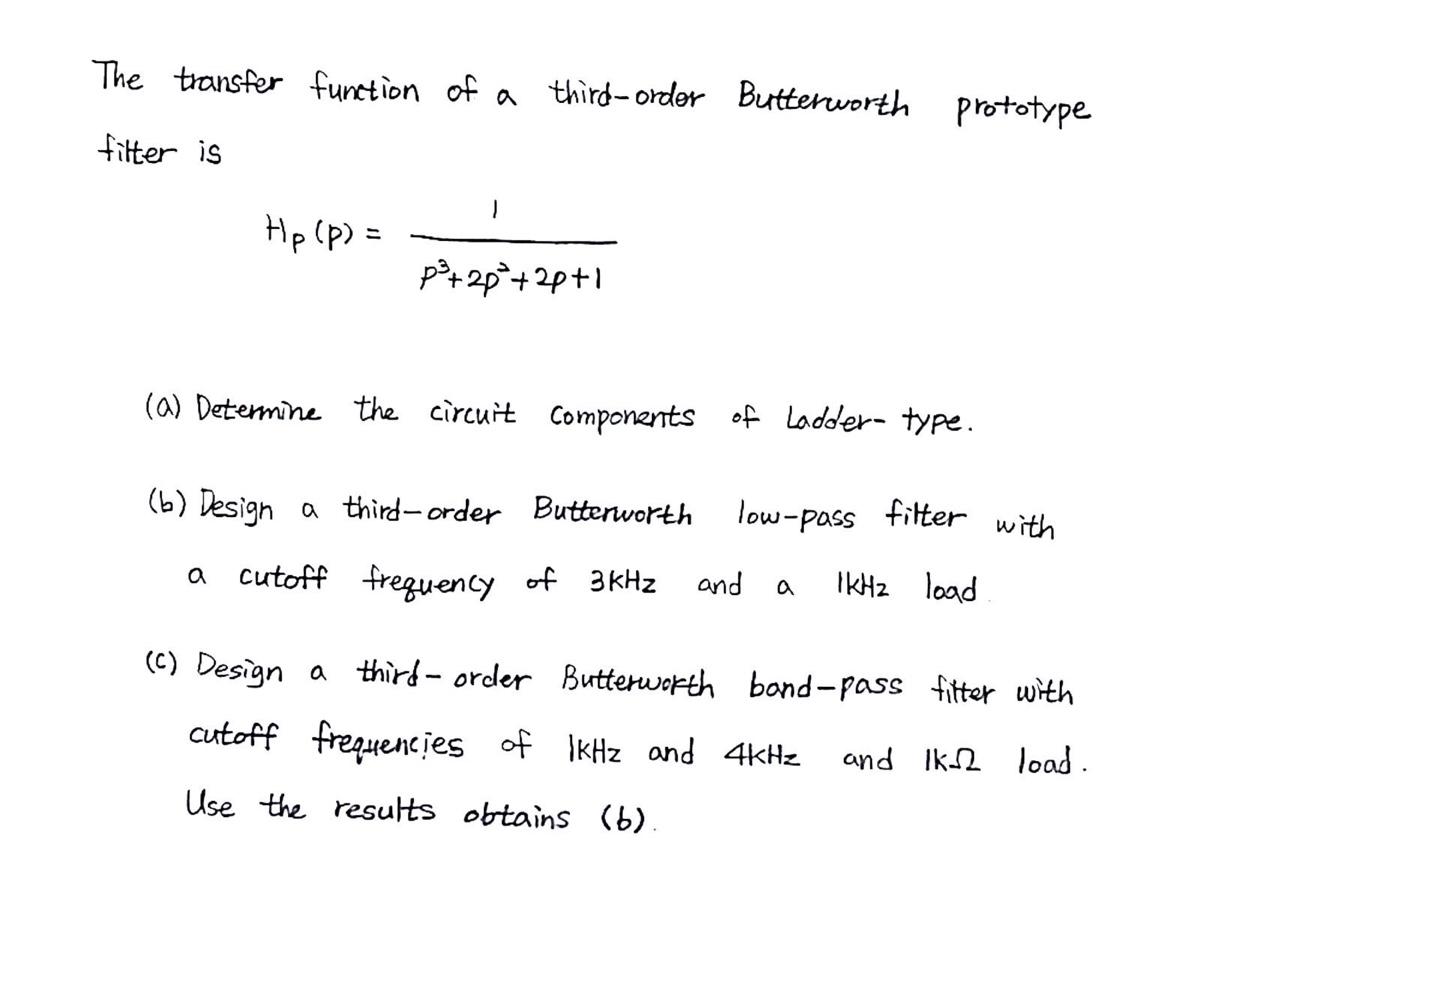 The transfer function of a third-order Butterworth prototype
filter is
Hp(p) = 1 / (p³+2p²+2p+1)
(a) Determine the circuit components of Ladder-type.
(b) Design a third-order Butterworth low-pass filter with
a cutoff frequency of 3kHz and a 1kHz load
(c) Design a third-order Butterworth band-pass filter with
cutoff frequencies of 1kHz and 4kHz and 1kΩ load.
Use the results obtains (b).